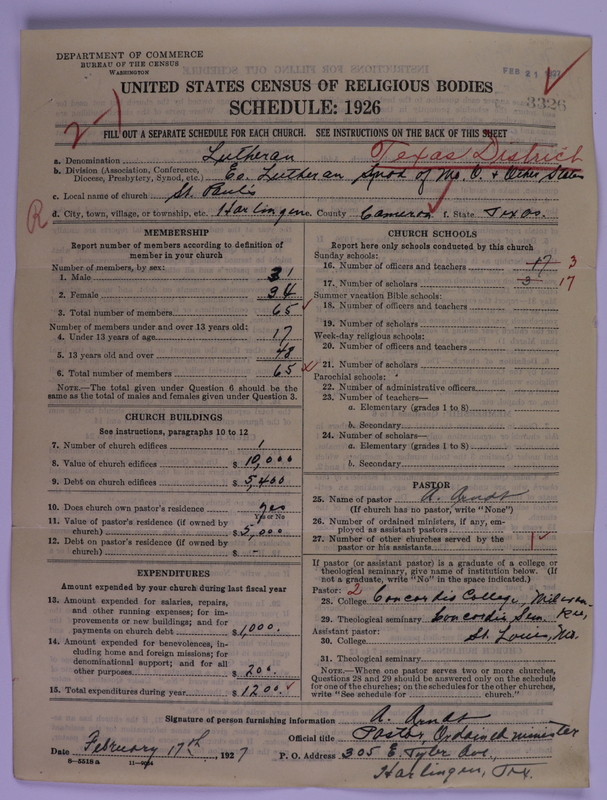 DEPARTMENT OF COMMERCE
BUREAU OF THE CENSUS
WASHINGTON
FEB 21 1927
3326
2-1
UNITED STATES CENSUS OF RELIGIOUS BODIES
SCHEDULE: 1926
FILL OUT A SEPARATE SCHEDULE FOR EACH CHURCH. SEE INSTRUCTIONS ON THE BACK OF THIS SHEET
a. Denomination Lutheran Texas District
b. Division (Association, Conference, Diocese, Presbytery, Synod, etc.) Ev. Lutheran Synod of Mo. O. & Other States
c. Local name of church St. Pauls
R
d. City, town, village, or township, etc. Harlingen e. County Cameron f. State Texas.
MEMBERSHIP
Report number of members according to definition of member in your church
Number of members, by sex:
1. Male 31
2. Female 34
3. Total number of members 65
Number of members under and over 13 years old:
4. Under 13 years of age 17
5. 13 years old and over 48
6. Total number of members 65
NOTE.—The total given under Question 6 should be the same as the total of males and females given under Question 3.
CHURCH BUILDINGS
See instructions, paragraphs 10 to 12
7. Number of church edifices 1
8. Value of church edifices $ 10,000
9. Debt on church edifices $ 5,400
10. Does church own pastor's residence yes
Yes or No
11. Value of pastor's residence (if owned by church) $ 5,000
12. Debt on pastor's residence (if owned by church) $ -
EXPENDITURES
Amount expended by your church during last fiscal year
13. Amount expended for salaries, repairs, and other running expenses; for improvements or new buildings; and for payments on church debt $ 1,000.
14. Amount expended for benevolences, including home and foreign missions; for denominational support; and for all other purposes $ 200.
15. Total expenditures during year $ 1200.
CHURCH SCHOOLS
Report here only schools conducted by this church
Sunday schools:
16. Number of officers and teachers 17 3
17. Number of scholars 3 17
Summer vacation Bible schools:
18. Number of officers and teachers
19. Number of scholars
Week-day religious schools:
20. Number of officers and teachers
21. Number of scholars
Parochial schools:
22. Number of administrative officers
23. Number of teachers—
a. Elementary (grades 1 to 8)
b. Secondary
24. Number of scholars—
a. Elementary (grades 1 to 8)
b. Secondary
PASTOR
25. Name of pastor A. Arndt
(If church has no pastor, write "None")
26. Number of ordained ministers, if any, employed as assistant pastors
27. Number of other churches served by the pastor or his assistants 1
If pastor (or assistant pastor) is a graduate of a college or theological seminary, give name of institution below. (If not a graduate, write "No" in the space indicated.)
Pastor: 2
28. College Concordia College, Milwaukee,
29. Theological seminary Concordia Sem. St. Louis, Mo.
Assistant pastor:
30. College
31. Theological seminary
NOTE.—Where one pastor serves two or more churches, Questions 28 and 29 should be answered only on the schedule for one of the churches; on the schedules for the other churches, write "See schedule for church."
Signature of person furnishing information A. Arndt
Official title Pastor, Ordained minister
Date February 17th 1927 P. O. Address 305 E. Tyler Ave,
Harlingen, Tex.
8-5518a